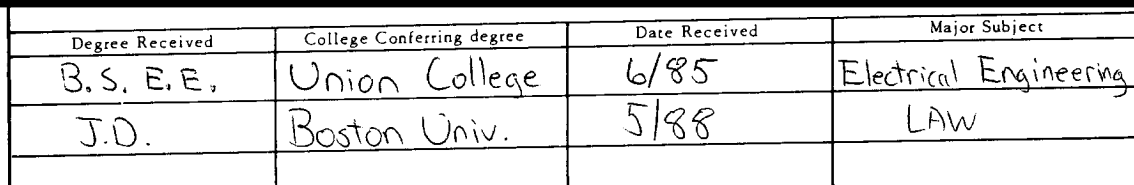 Degree Received College Conferring degree Date Received Major Subject
B.S. E.E. Union College 6/85 Electrical Engineering
J.D. Boston Univ. 5/88 LAW